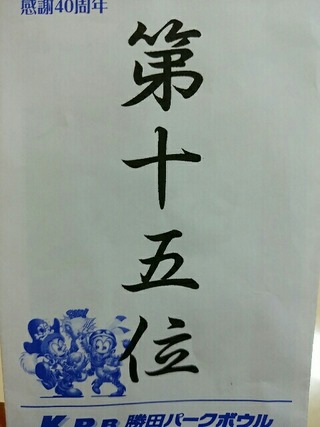 感謝40周年
第十五位
KPB 勝田パークボウル